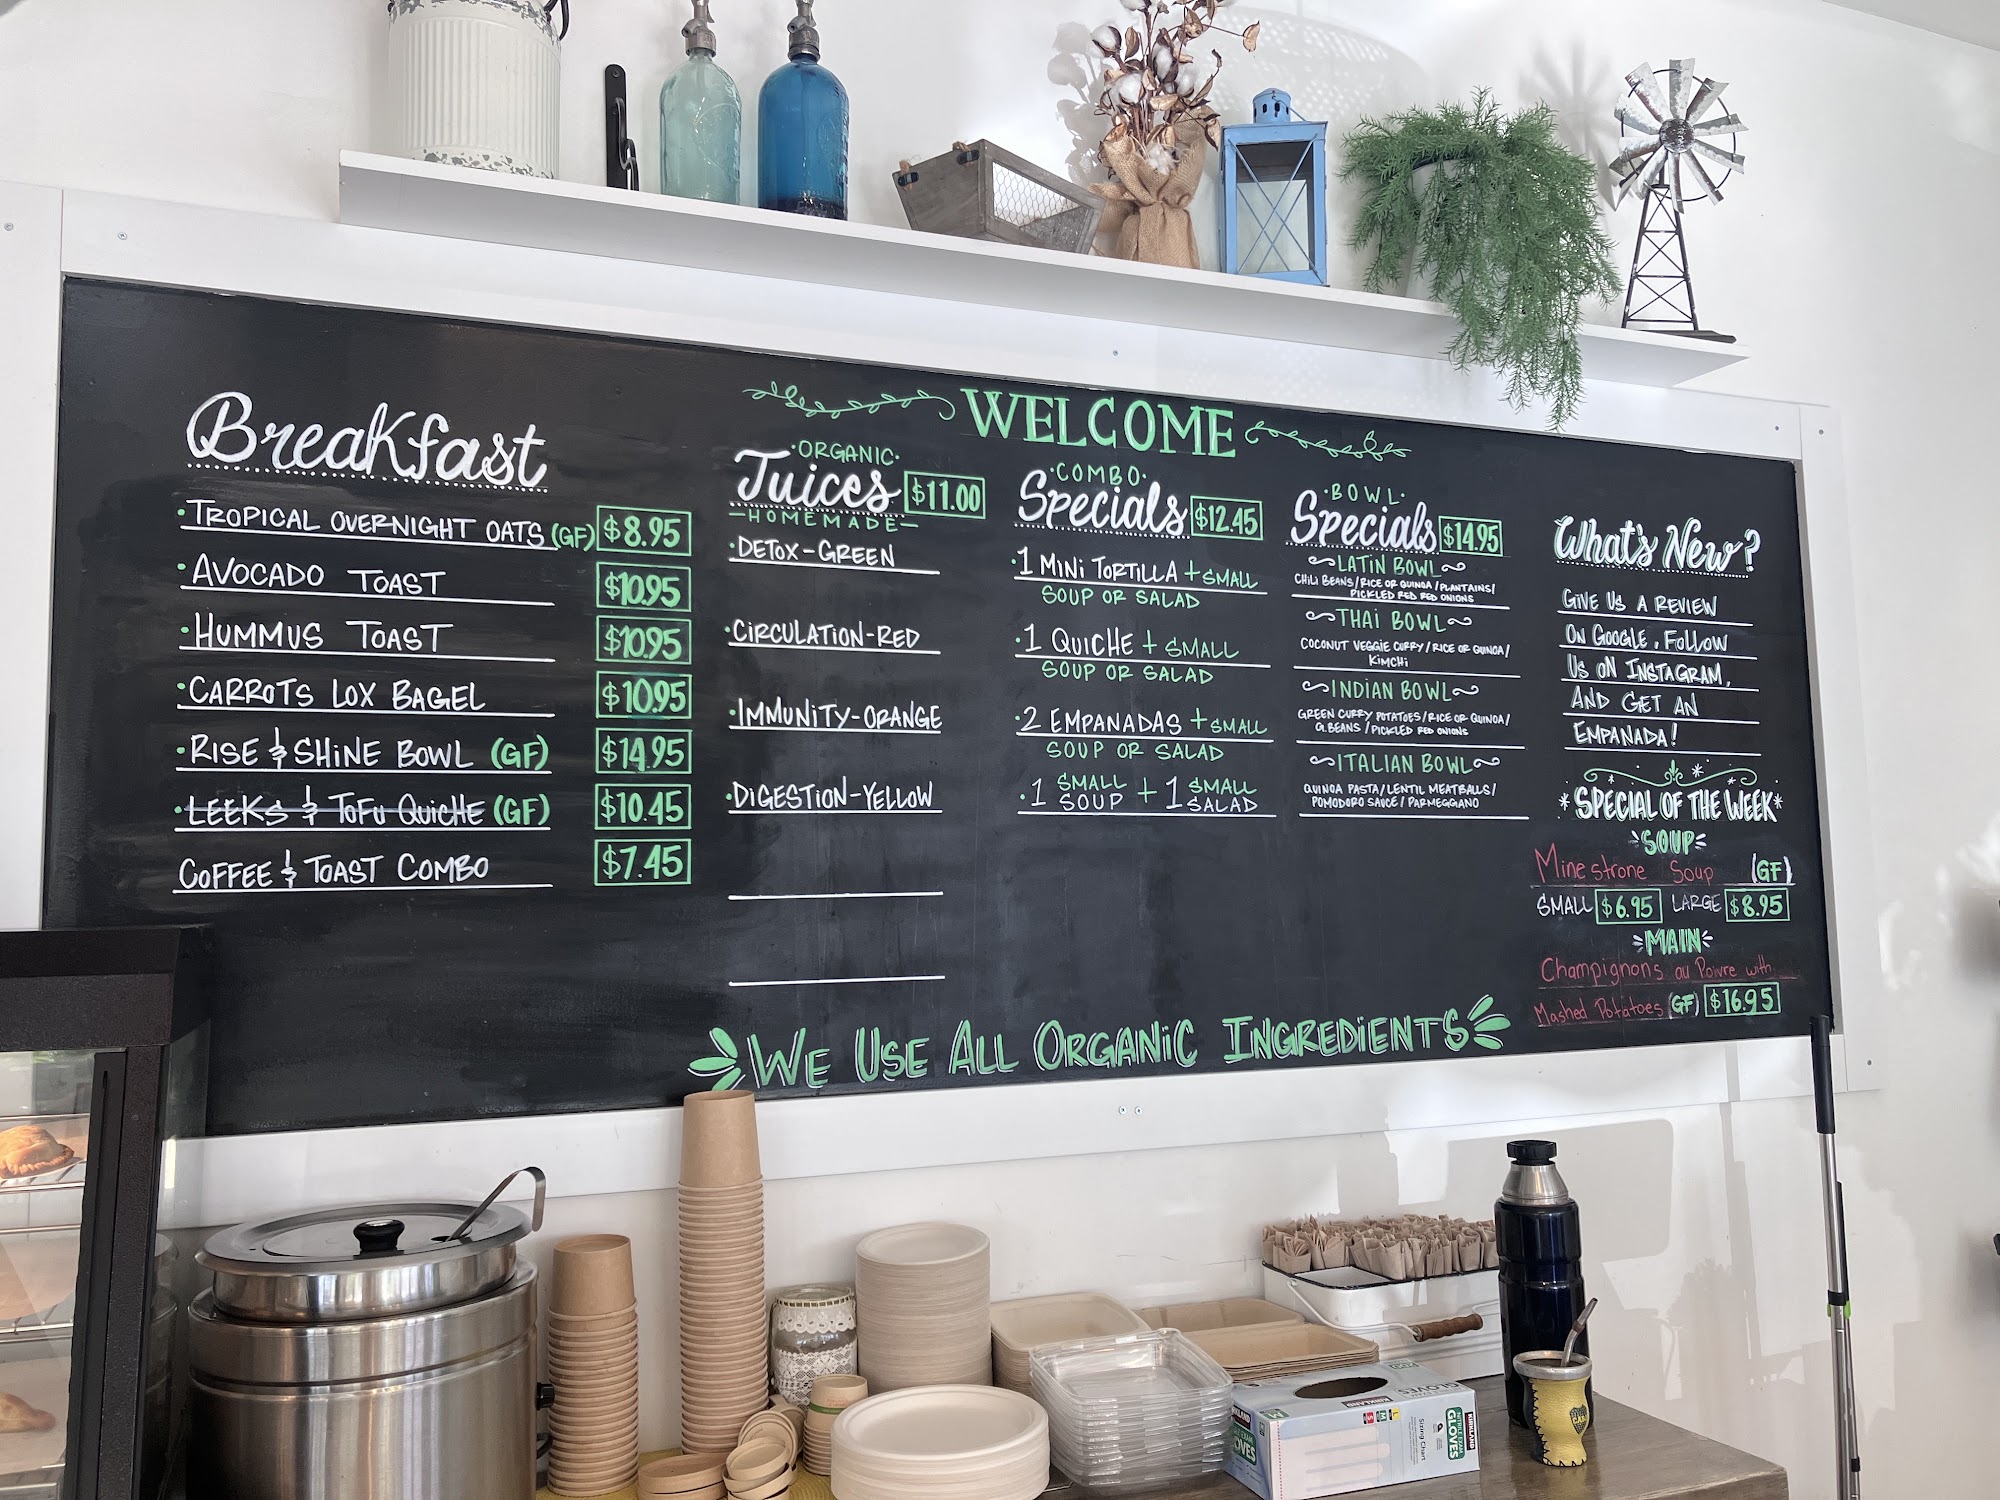 WELCOME
Breakfast
·TROPICAL OVERNIGHT OATS (GF) $8.95
·AVOCADO TOAST $10.95
·HUMMUS TOAST $10.95
·CARROTS LOX BAGEL $10.95
·RISE & SHINE BOWL (GF) $14.95
·LEEKS & TOFU QUICHE (GF) $10.45
COFFEE & TOAST COMBO $7.45
·ORGANIC·
Juices $11.00
-HOMEMADE-
·DETOX-GREEN
·CIRCULATION-RED
·IMMUNITY-ORANGE
·DIGESTION-YELLOW
·COMBO·
Specials $12.45
·1 MINI TORTILLA + SMALL
SOUP OR SALAD
·1 QUICHE + SMALL
SOUP OR SALAD
·2 EMPANADAS + SMALL
SOUP OR SALAD
·1 SMALL SOUP + 1 SMALL SALAD
·BOWL·
Specials $14.95
LATIN BOWL
CHILI BEANS/RICE OR QUINOA/PLANTAINS/
PICKLED RED RED ONIONS
THAI BOWL
COCONUT VEGGIE CURRY/RICE OR QUINOA/
KIMCHI
INDIAN BOWL
GREEN CURRY POTATOES/RICE OR QUINOA/
G.BEANS/PICKLED RED ONIONS
ITALIAN BOWL
QUINOA PASTA/LENTIL MEATBALLS/
POMODORO SAUCE/PARMEGGIANO
What's New?
GIVE US A REVIEW
ON GOOGLE, FOLLOW
US ON INSTAGRAM,
AND GET AN
EMPANADA!
*SPECIAL OF THE WEEK*
SOUP
Minestrone Soup (GF)
SMALL $6.95 LARGE $8.95
MAIN
Champignons au Poivre with
Mashed Potatoes (GF) $16.95
WE USE ALL ORGANIC INGREDIENTS
KIRKLAND
GLOVES
Sizing Chart
NITRILE EXAM
GLOVES
KIRKLAND